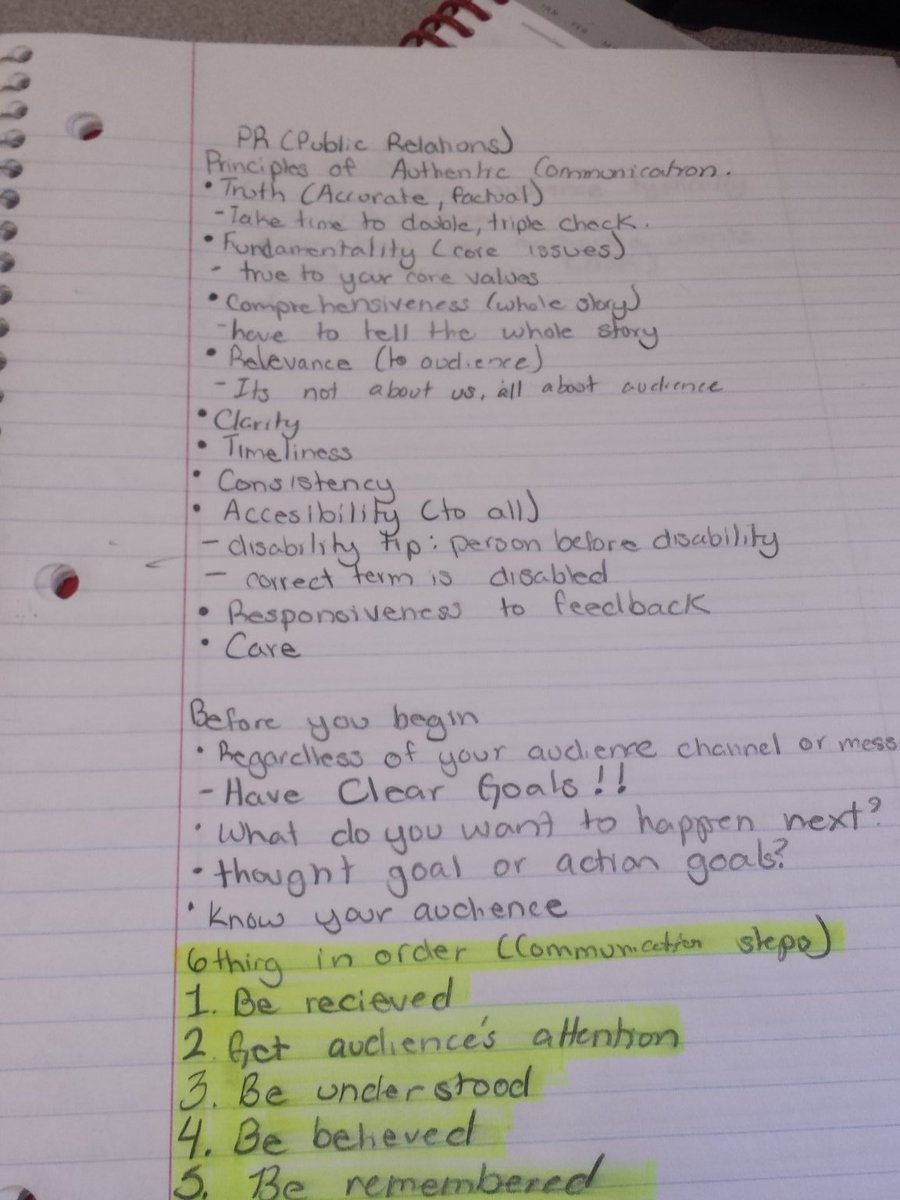 PR (Public Relations)
Principles of Authentic Communication.
• Truth (Accurate, factual)
- Take time to double, triple check.
• Fundamentality (core issues)
- true to your core values
• Comprehensiveness (whole story)
- have to tell the whole story
• Relevance (to audience)
- Its not about us, all about audience
• Clarity
• Timeliness
• Consistency
• Accesibility (to all)
- disability tip: person before disability
- correct term is disabled
• Responsiveness to feedback
• Care
Before you begin
• Regardless of your audience channel or mess
- Have Clear Goals!!
• What do you want to happen next?
• thought goal or action goals?
• Know your audience
6 thing in order (Communication steps)
1. Be recieved
2. Get audience's attention
3. Be understood
4. Be believed
5. Be remembered